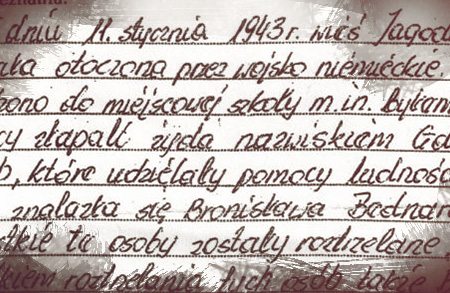 dniu 11. stycznia 1943 r. wieś Jagod
ała otoczona przez wojsko niemieckie.
zono do miejscowej szkoły m.in. Byłam
cy złapali żyda nazwiskiem Go
b, które udzielały pomocy ludnośc
znalazła się Bronisława Bednar
stkie te osoby zostały roztrzelane
kiem roztrzelania tych osób także